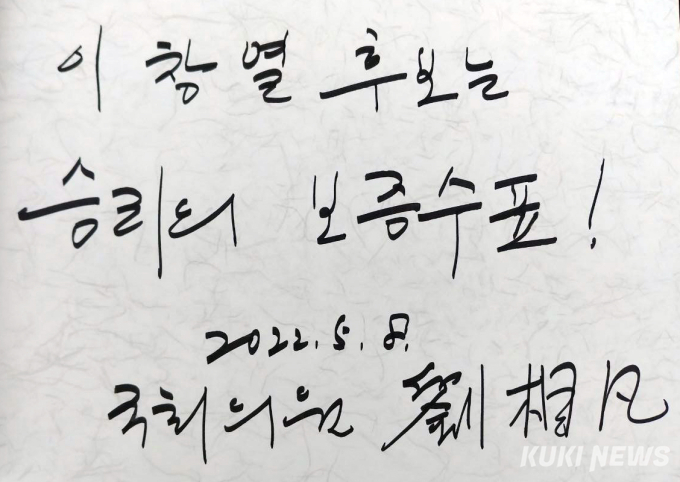 이창열 후보는
승리의 보증수표!
2022. 5. 8.
국회의원 劉相凡
KUKI NEWS